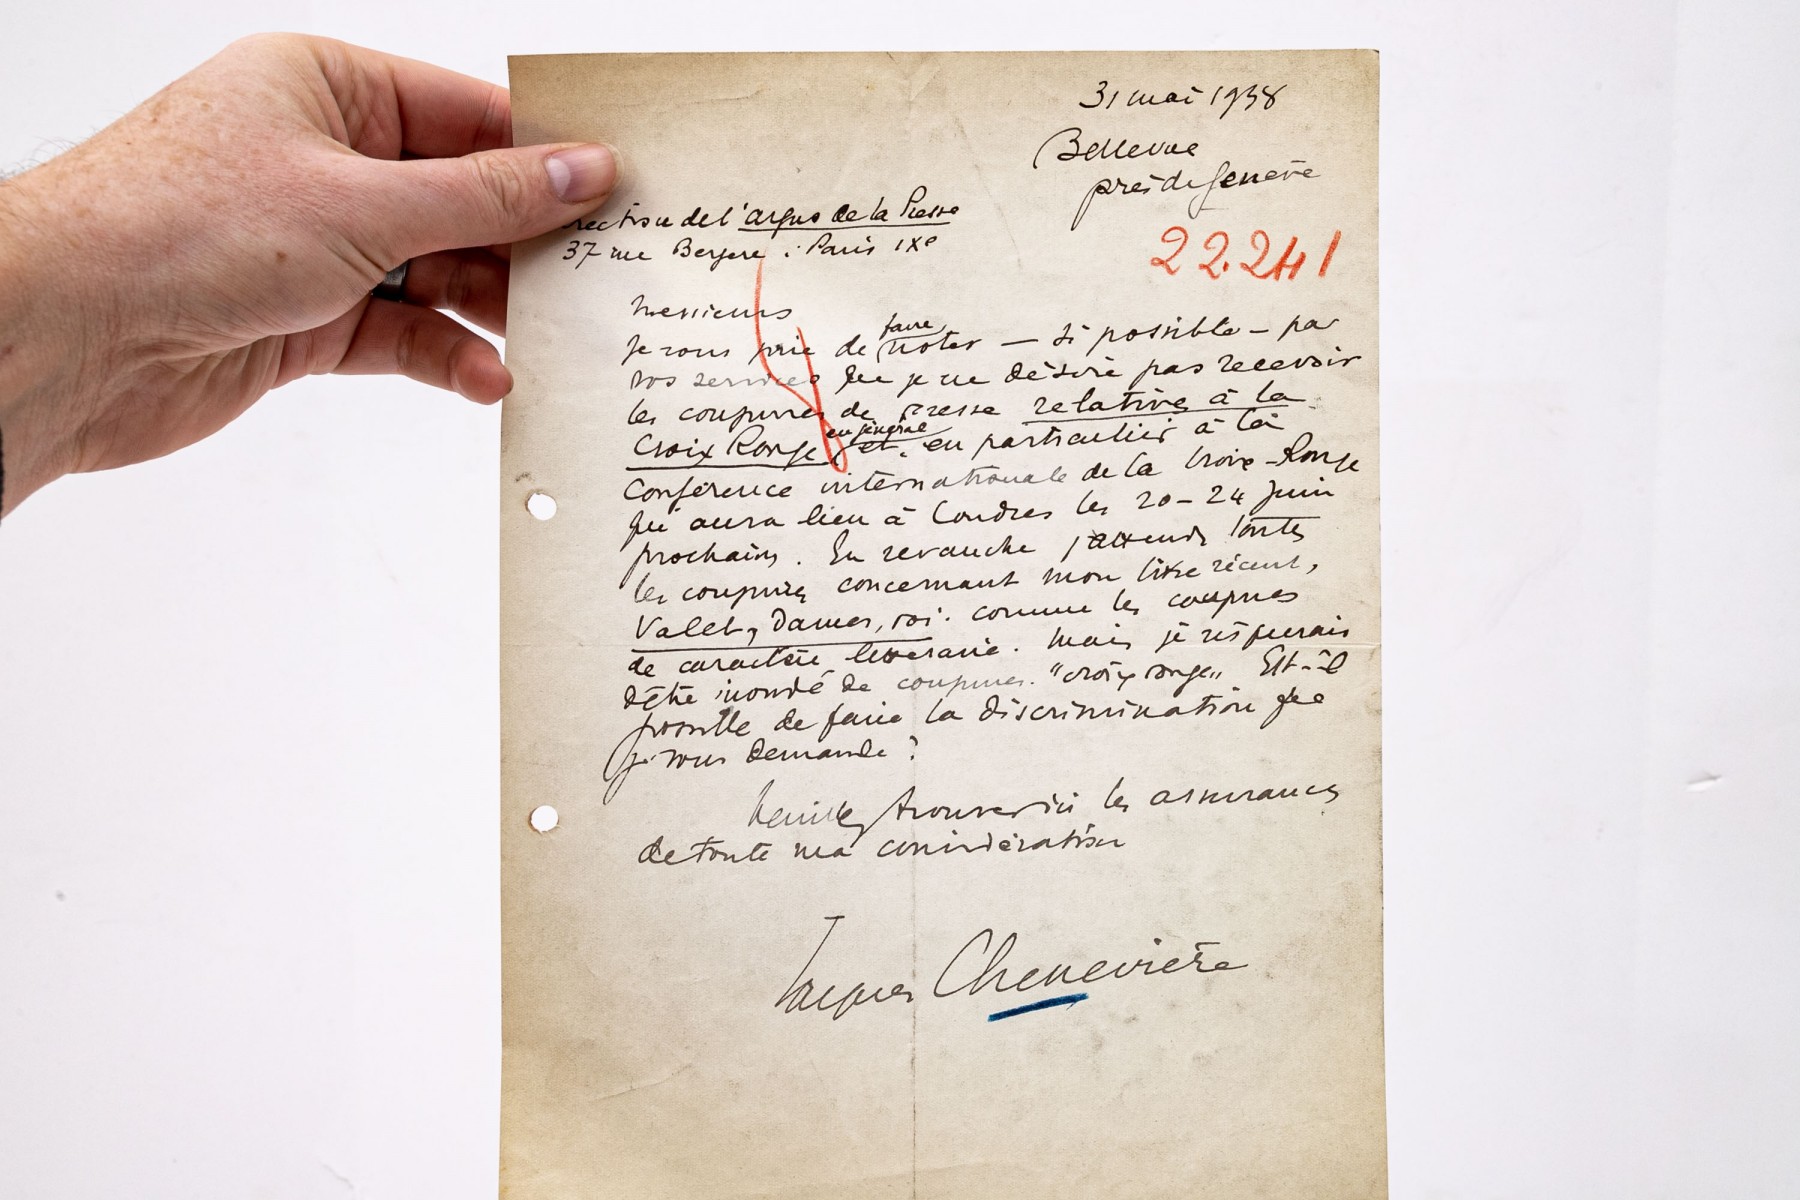 31 mai 1938
Bellevue
près de Genève
rection de l'argus de la Presse
37 rue Bergere : Paris IXe
22.241
Messieurs
faire
Je vous prie de noter — si possible — par
vos services que je ne désire pas recevoir
les coupures de presse relatives à la
en général
Croix Rouge, et, en particulier à la
Conférence internationale de la Croix-Rouge
qui aura lieu à Londres les 20-24 juin
prochains. En revanche j'attends toutes
les coupures concernant mon livre récent,
Valet, Dames, roi. comme les coupures
de caractère littéraire. Mais je
d'être inondé de coupures "croix rouge". Est-il
possible de faire la discrimination que
je vous demande ?
Veuillez trouver ici les assurances
de toute ma considération
Jacques Chenevière